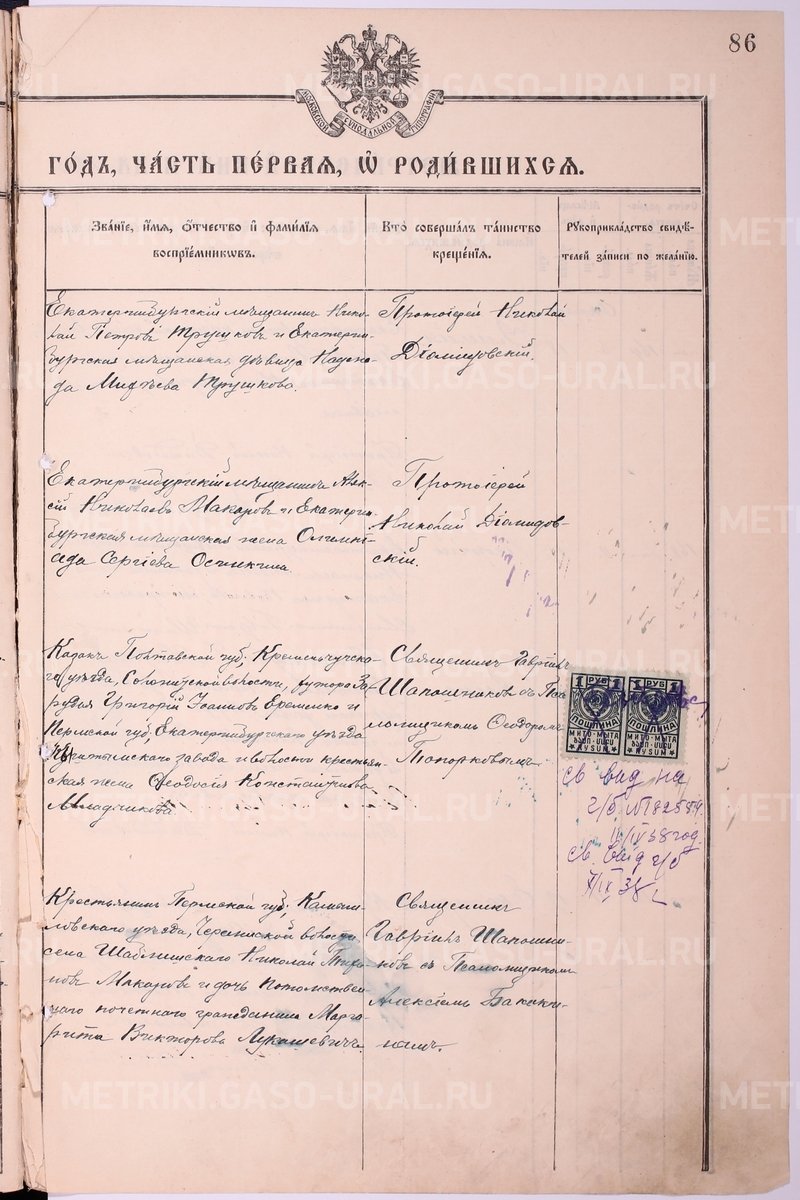 86
МОСКОВСКОЙ СѴНОДАЛЬНОЙ ТИПОГРАФІИ
ГО́ДЪ, ЧА́СТЬ ПЕ́РВАЯ, Ѡ҆ РОДИ́ВШИХСЯ.
Зва́нїе, и҆́мя, ѻ҆́тчество и҆ фами́лїя
воспрїе́мникѡвъ.
Кто̀ соверша́лъ та́инство
креще́нїя.
Рꙋкоприкла́дство свидѣ́-
телей за́писи по жела́нїю.
Екатеринбургскій мѣщанинъ Нико-
лай Петровъ Трушковъ и Екатерин-
бургская мѣщанская дѣвица Надеж-
да Трушкова.
Протоіерей Николай
Діомидовскій.
Екатеринбургскій мѣщанинъ Алек-
сій Николаевъ Макаровъ и Екатерин-
бургская мѣщанская жена Олимпі-
ада Сергіева Осинкина.
Протоіерей
Николай Діомидов-
скій.
Казакъ Полтавской губ. Кременчугска-
го уѣзда, волости, хутора За-
Григорій Іоанновъ Еременко и
Пермской губ., Екатеринбургскаго уѣзда
завода и волости крестьян-
ская жена Феодосія Константинова
Младчикова.
Священникъ Гавріилъ
Шапошниковъ съ Пса-
ломщикомъ Феодоромъ
Топорковымъ
1 РУБ 1 РУБ
ПОШЛИНА ПОШЛИНА
МИТО-МЫТА
RÜSUM RÜSUM
св вид на
г/б № 182589.
11/IV 38 год.
св. вид г/б
7/IX 38 г
Крестьянинъ Пермской губ., Камыш-
ловскаго уѣзда, волости
села Шаблишскаго Николай
новъ Макаровъ и дочь потомствен-
наго почетнаго гражданина Марга-
рита Викторова Лукашевичъ.
Священникъ
Гавріилъ Шапошни-
ковъ съ Псаломщикомъ
Алексіемъ Бакаки-
нымъ.
METRIKI.GASO-URAL.RU